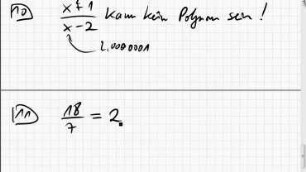 10) x+1 / x-2 kann kein Polynom sein!
2,0000001
11) 18/7 = 2.